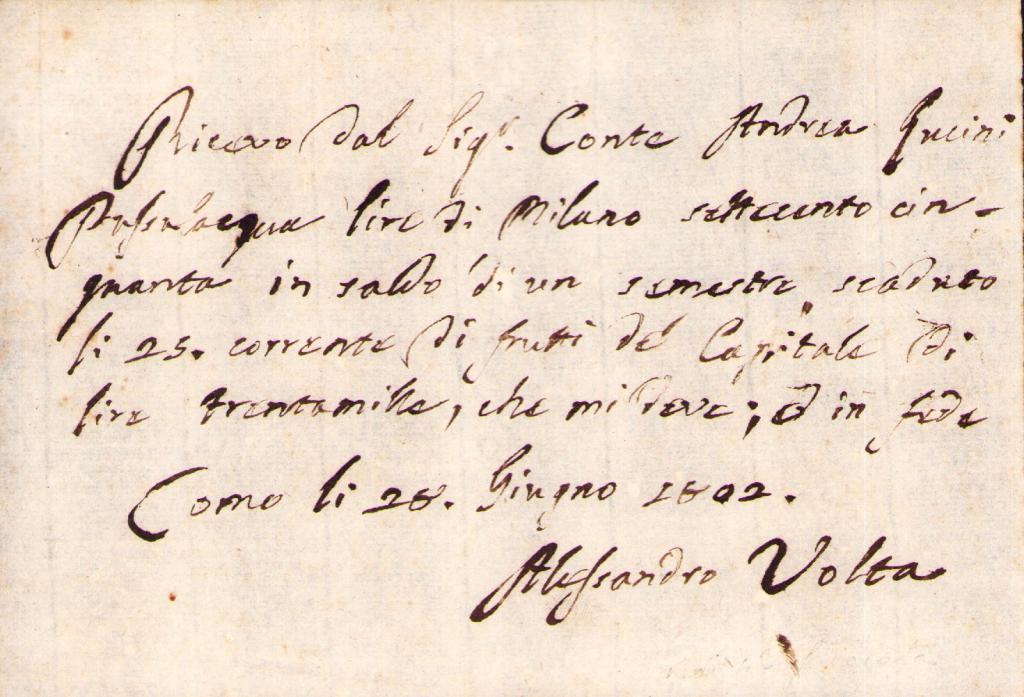 Ricevo dal Sig.r Conte Andrea Lucini
Passalacqua lire di Milano settecento cin-
quanta in saldo di un semestre scaduto
li 25. corrente di frutti del Capitale di
lire trentamille, che mi deve; ed in fede
Como li 28. Giugno 1802.
Alessandro Volta